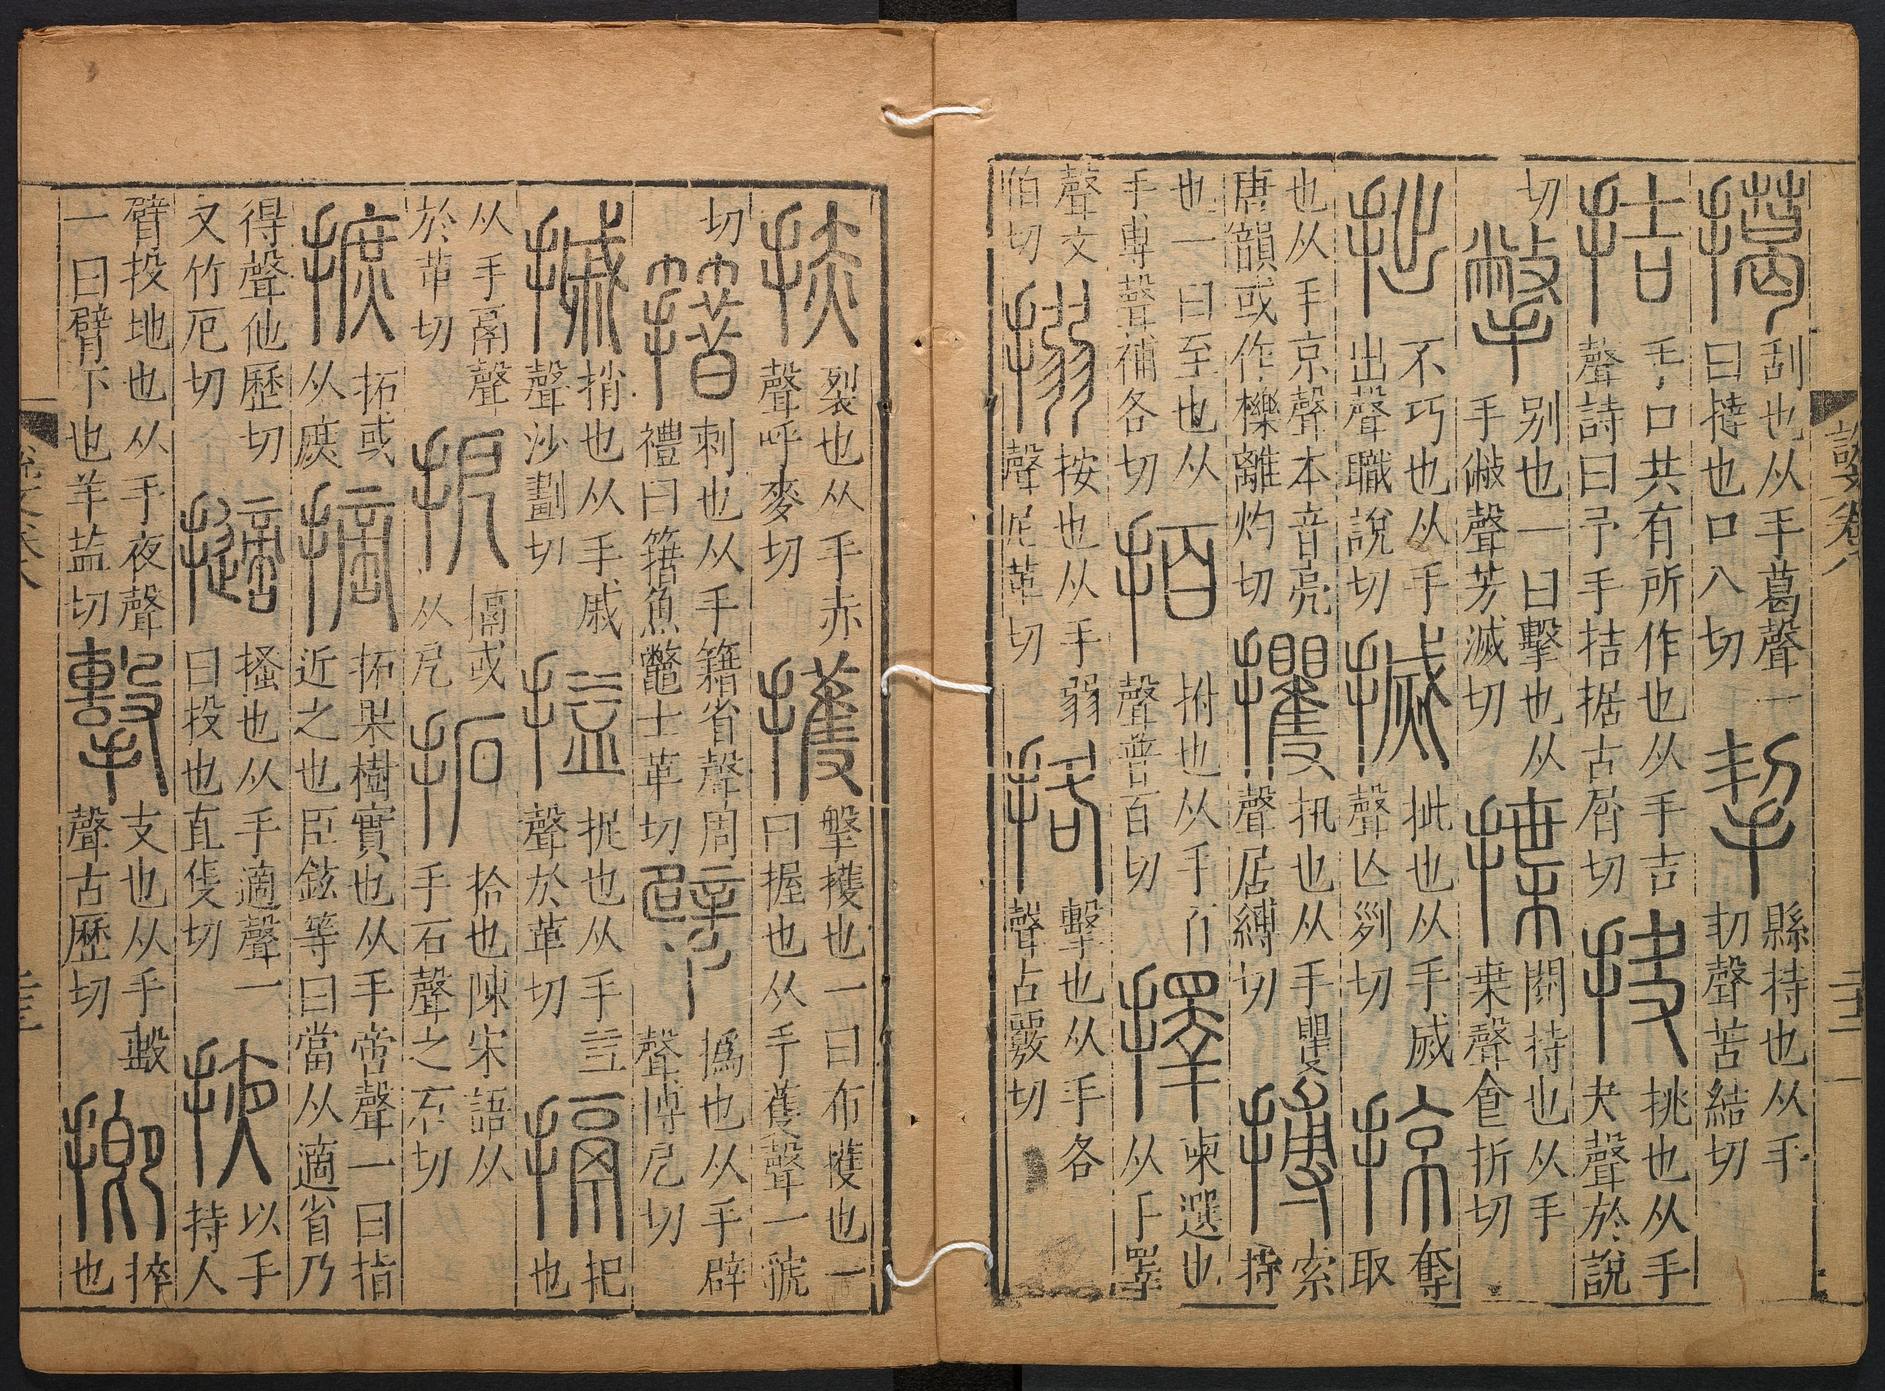 說文卷八
擖刮也从手葛聲一曰撻也口八切挈縣持也从手㓞聲苦結切
拮手口共有所作也从手吉聲詩曰予手拮据古屑切抉挑也从手夬聲於說
切撆别也一曰擊也从手敝聲芳滅切揲閱持也从手枼聲食折切
拙不巧也从手出聲職說切搣批也从手烕聲亾列切掠奪取
也从手京聲本音亮唐韻或作擽離灼切攫扟也从手矍聲居縛切搏索持
也一曰至也从手尃聲補各切拍拊也从手百聲普百切擇柬選也从手睪
聲丈伯切搦按也从手弱聲尼革切挌擊也从手各聲古覈切
捇裂也从手赤聲呼麥切擭㩇擭也一曰布擭也一曰握也从手蒦聲一虢
切籍刺也从手籍省聲周禮曰籍魚鼈士革切擘撝也从手辟聲博戹切
摵捎也从手戚聲沙劃切搤捉也从手益聲於革切搹把也
从手鬲聲於革切㧖搹或从戹拓拾也陳宋語从手石聲之石切
摭拓或从庶摘拓果樹實也从手啻聲一曰指近之也臣鉉等曰當从適省乃
得聲他歷切又竹厄切擿搔也从手適聲一曰投也直隻切掖以手持人
臂投地也从手夜聲一曰臂下也羊益切擊支也从手毄聲古歷切揤捽也
說文卷八